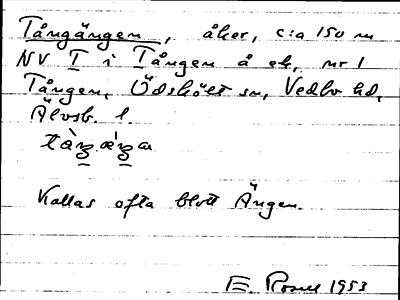 Tångängen, åker, c:a 150 m
NV T i Tången å ek, nr 1
Tången, Ödskölt sn, Vedbo hd,
Älvsb. l.
Kallas ofta blott Ängen.
E. 1953